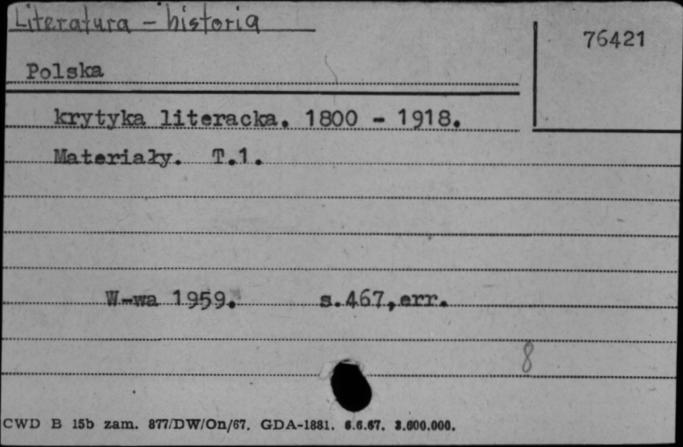 Literatura - historia
76421
Polska
krytyka literacka. 1800 - 1918.
Materiały. T.1.
W-wa 1959. s.467,err.
8
CWD B 15b zam. 877/DW/On/67. GDA-1881. 6.6.67. 3.600.000.